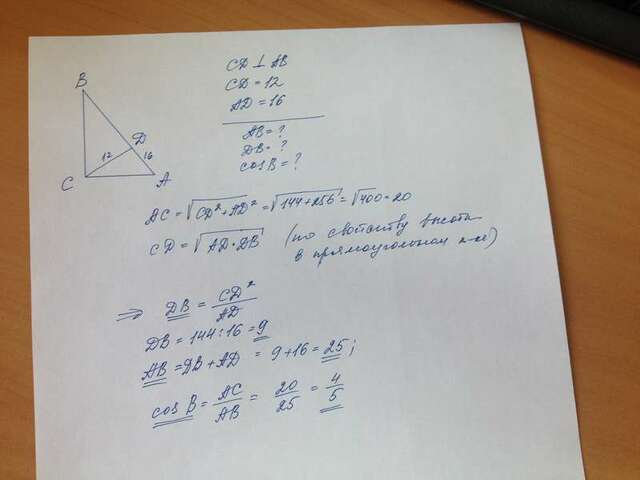 B
C
D
A
12
16
CD ⊥ AB
CD = 12
AD = 16
AB = ?
DB = ?
cos B = ?
AC = √CD² + AD² = √144 + 256 = √400 = 20
CD = √AD · DB (по свойству высоты
в прямоугольном
⇒ DB = CD² / AD
DB = 144 : 16 = 9
AB = DB + AD = 9 + 16 = 25;
cos B = AC / AB = 20 / 25 = 4 / 5